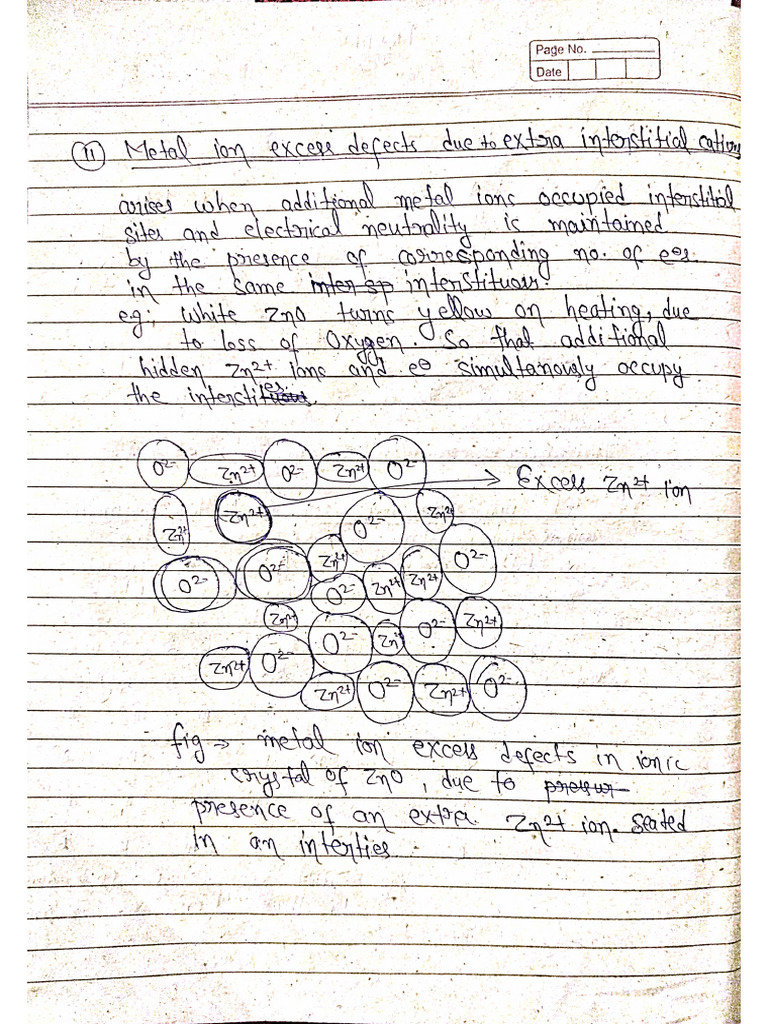 Page No.
Date
(11) Metal ion excess defects due to extra interstitial cations
arises when additional metal ions occupied interstitial
sites and electrical neutrality is maintained
by the presence of corresponding no. of e⊖s.
in the same interstituous.
eg; White ZnO turns yellow on heating, due
to loss of Oxygen. So that additional
hidden Zn2+ ions and e⊖ simultanously occupy
the interstities.
O2- Zn2+ O2- Zn2+ O2-
Excess Zn2+ ion
Zn2+ Zn2+ O2- Zn2+
O2- O2- Zn2+ O2- Zn2+ Zn2+ O2-
Zn2+ O2- Zn2+ O2- Zn2+
Zn2+ O2- Zn2+ O2- Zn2+ O2-
fig → metal ion excess defects in ionic
crystal of ZnO, due to
presence of an extra Zn2+ ion. Seated
in an interties